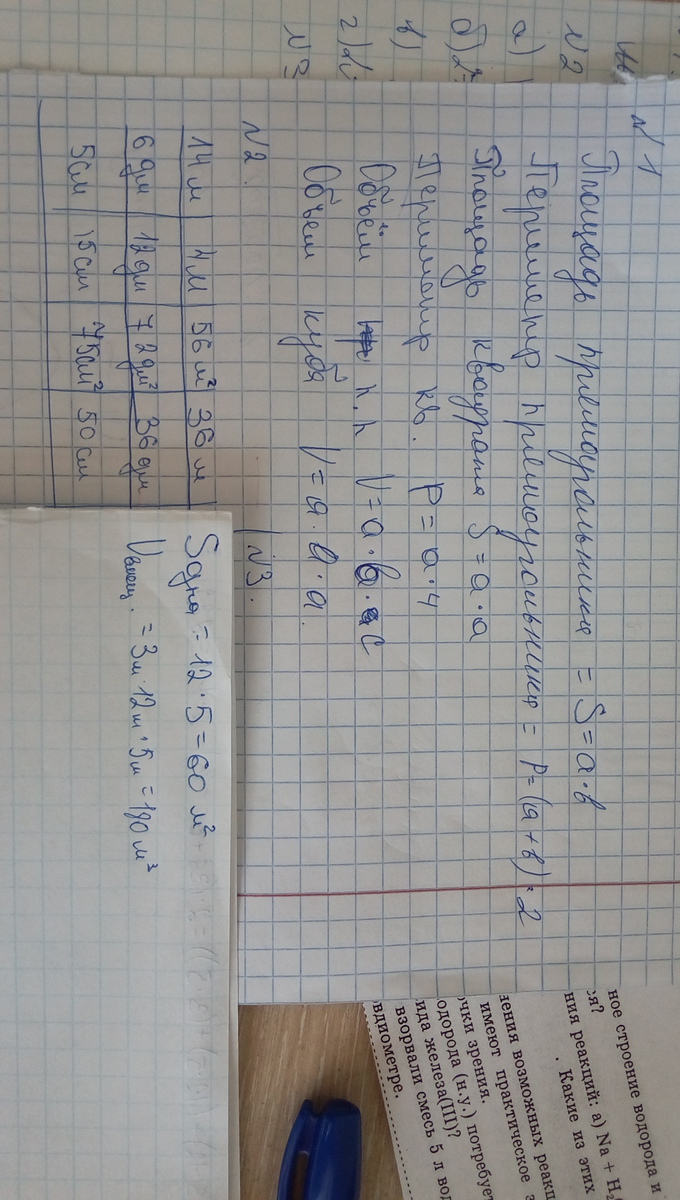 №1
Площадь прямоугольника = S = a · в
Периметр прямоугольника = P = (a + в) · 2
Площадь квадрата S = a · a
Периметр кв. P = a · 4
Объём п.п V = a · в · c
Объём куба V = a · a · a.
№2.
14 м 4 м 56 м² 36 м
6 дм 12 дм 72 дм² 36 дм
5 см 15 см 75 см² 50 см
№3.
Sдна = 12 · 5 = 60 м²
Vвмещ. = 3 м · 12 м · 5 м = 180 м³
№2
а)
б) 2
в)
г)
№3
ное строение водорода и
ся?
ния реакций: а) Na + H₂
. Какие из этих
нения возможных реакц
имеют практическое з
очки зрения.
одорода (н.у.) потребует
ида железа(III)?
взорвали смесь 5 л вод
вдиометре.